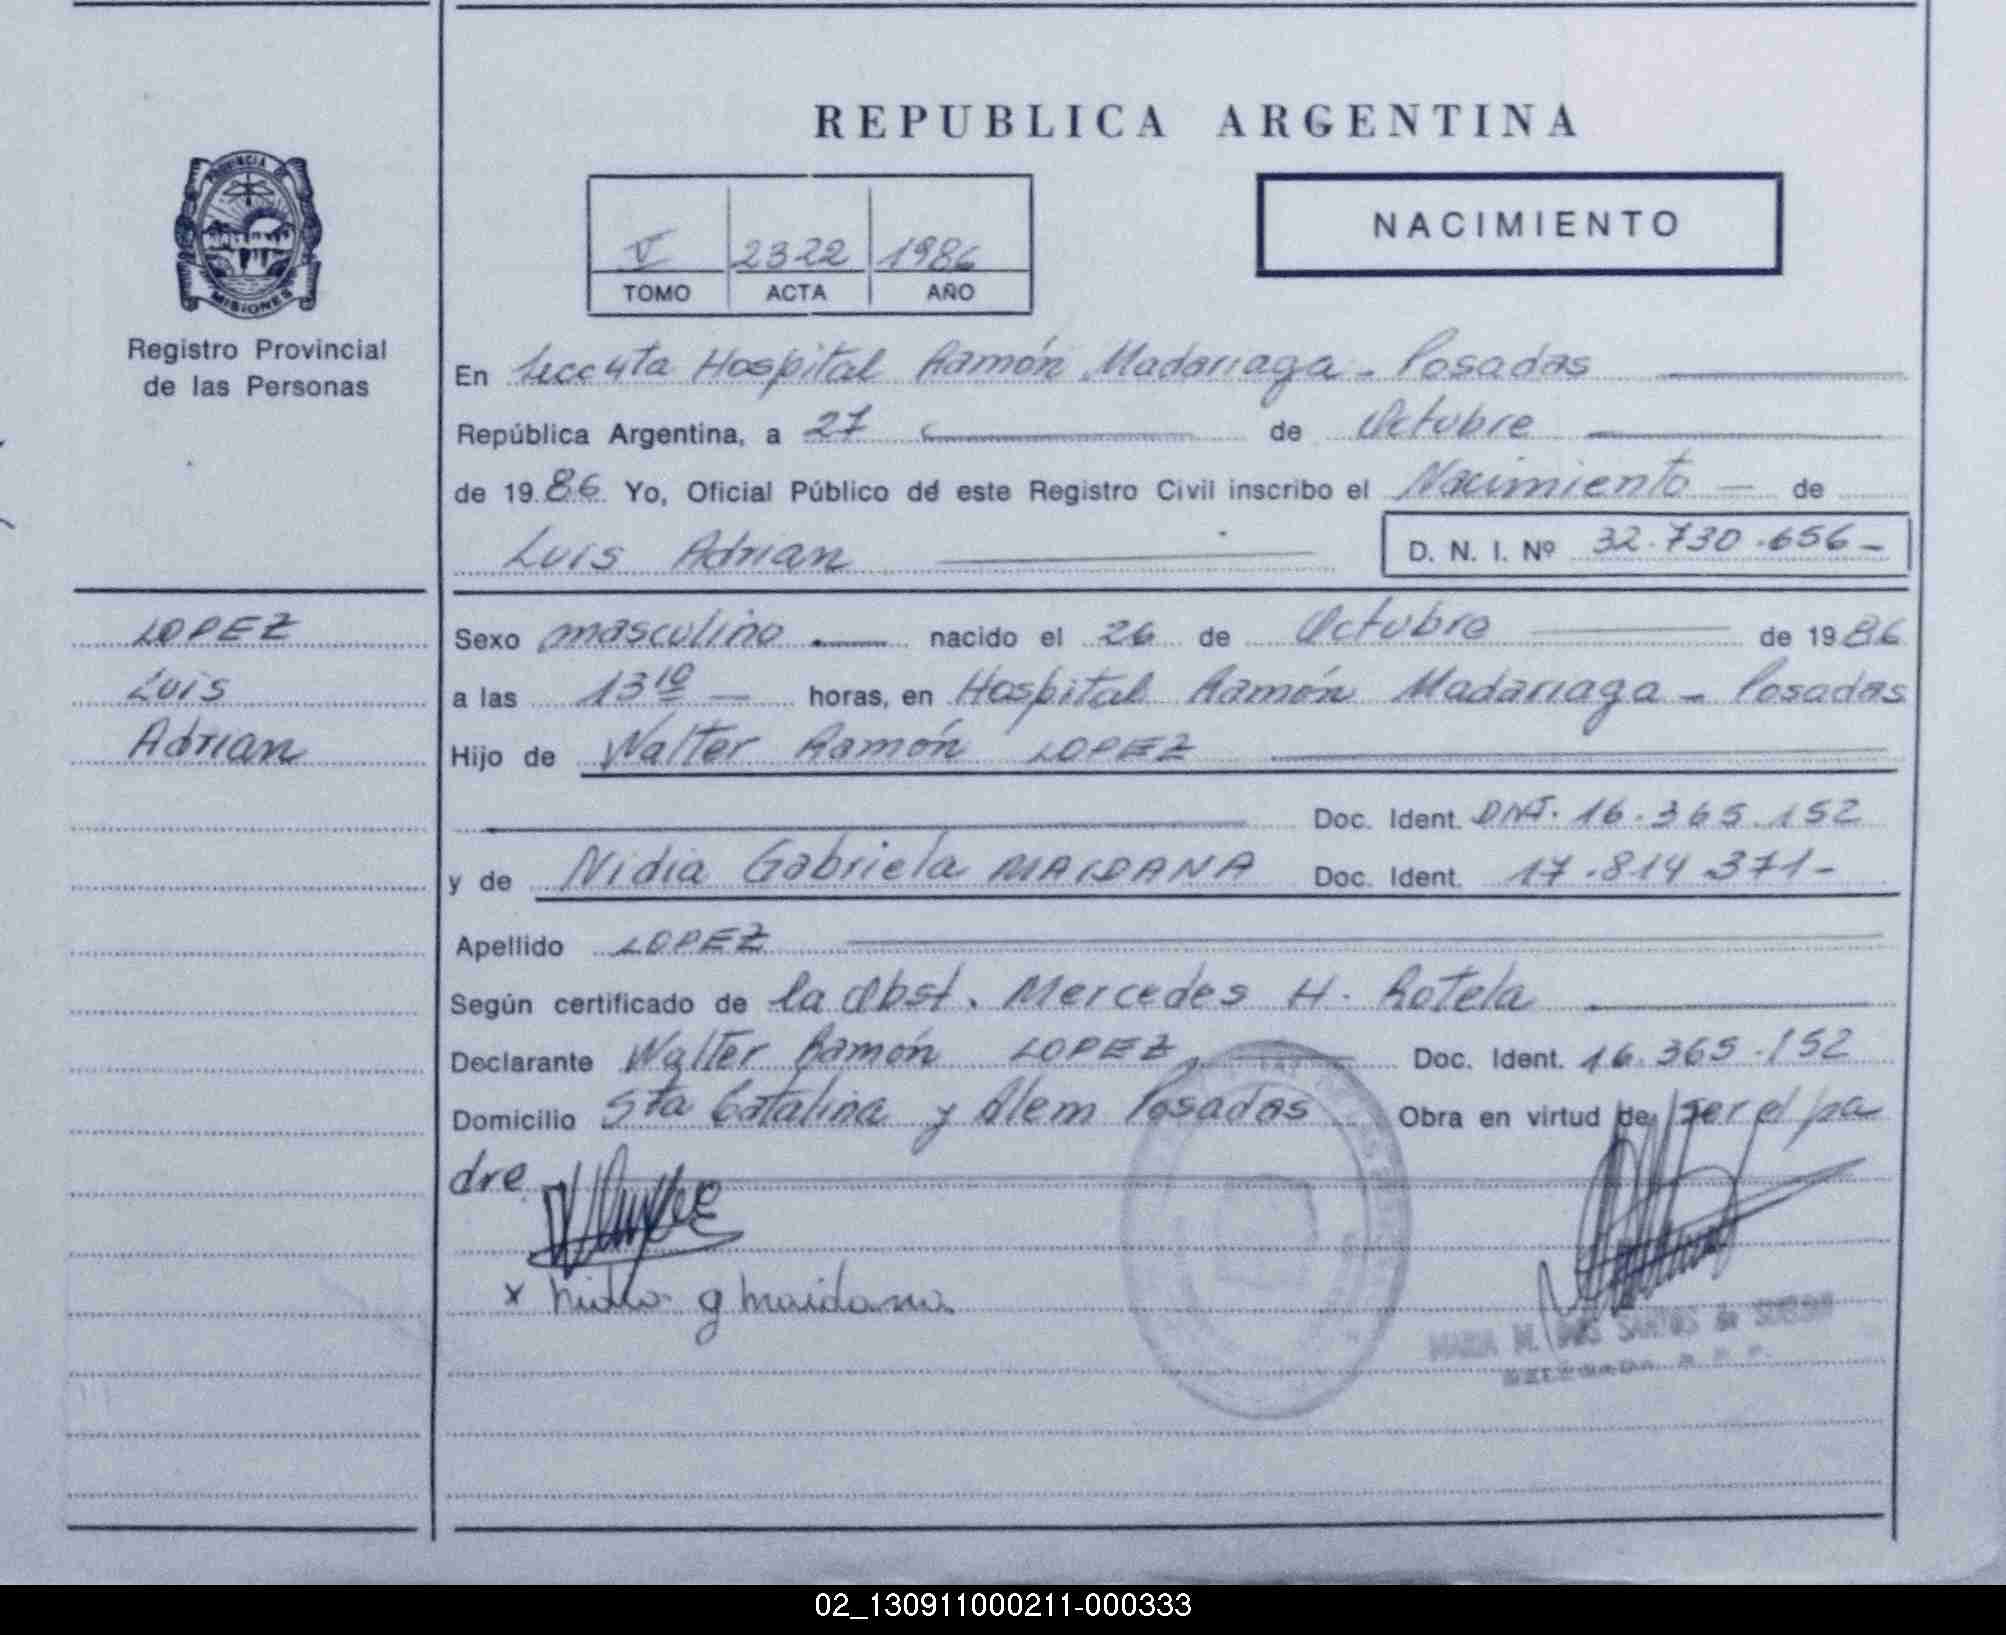 REPUBLICA ARGENTINA
PROVINCIA DE
MISIONES
Registro Provincial
de las Personas
V 2322 1986
TOMO ACTA AÑO
NACIMIENTO
En Secc 4ta Hospital Ramón Madariaga - Posadas
República Argentina, a 27 de Octubre
de 1986 Yo, Oficial Público de este Registro Civil inscribo el Nacimiento - de
Luis Adrian D. N. I. Nº 32.730.656-
LOPEZ
Luis
Adrian
Sexo masculino nacido el 26 de Octubre de 1986
a las 13 10 - horas, en Hospital Ramón Madariaga - Posadas
Hijo de Walter Ramón LOPEZ
Doc. Ident. DNI. 16.365.152
y de Nidia Gabriela MAIDANA Doc. Ident. 17.814.371-
Apellido LOPEZ
Según certificado de la Obst. Mercedes H. Rotela
Declarante Walter Ramón LOPEZ Doc. Ident. 16.365.152
Domicilio Sta Catalina y Alem Posadas Obra en virtud de ser el pa
dre
x Nidia g maidana
MARIA M. DOS SANTOS de
02_130911000211-000333